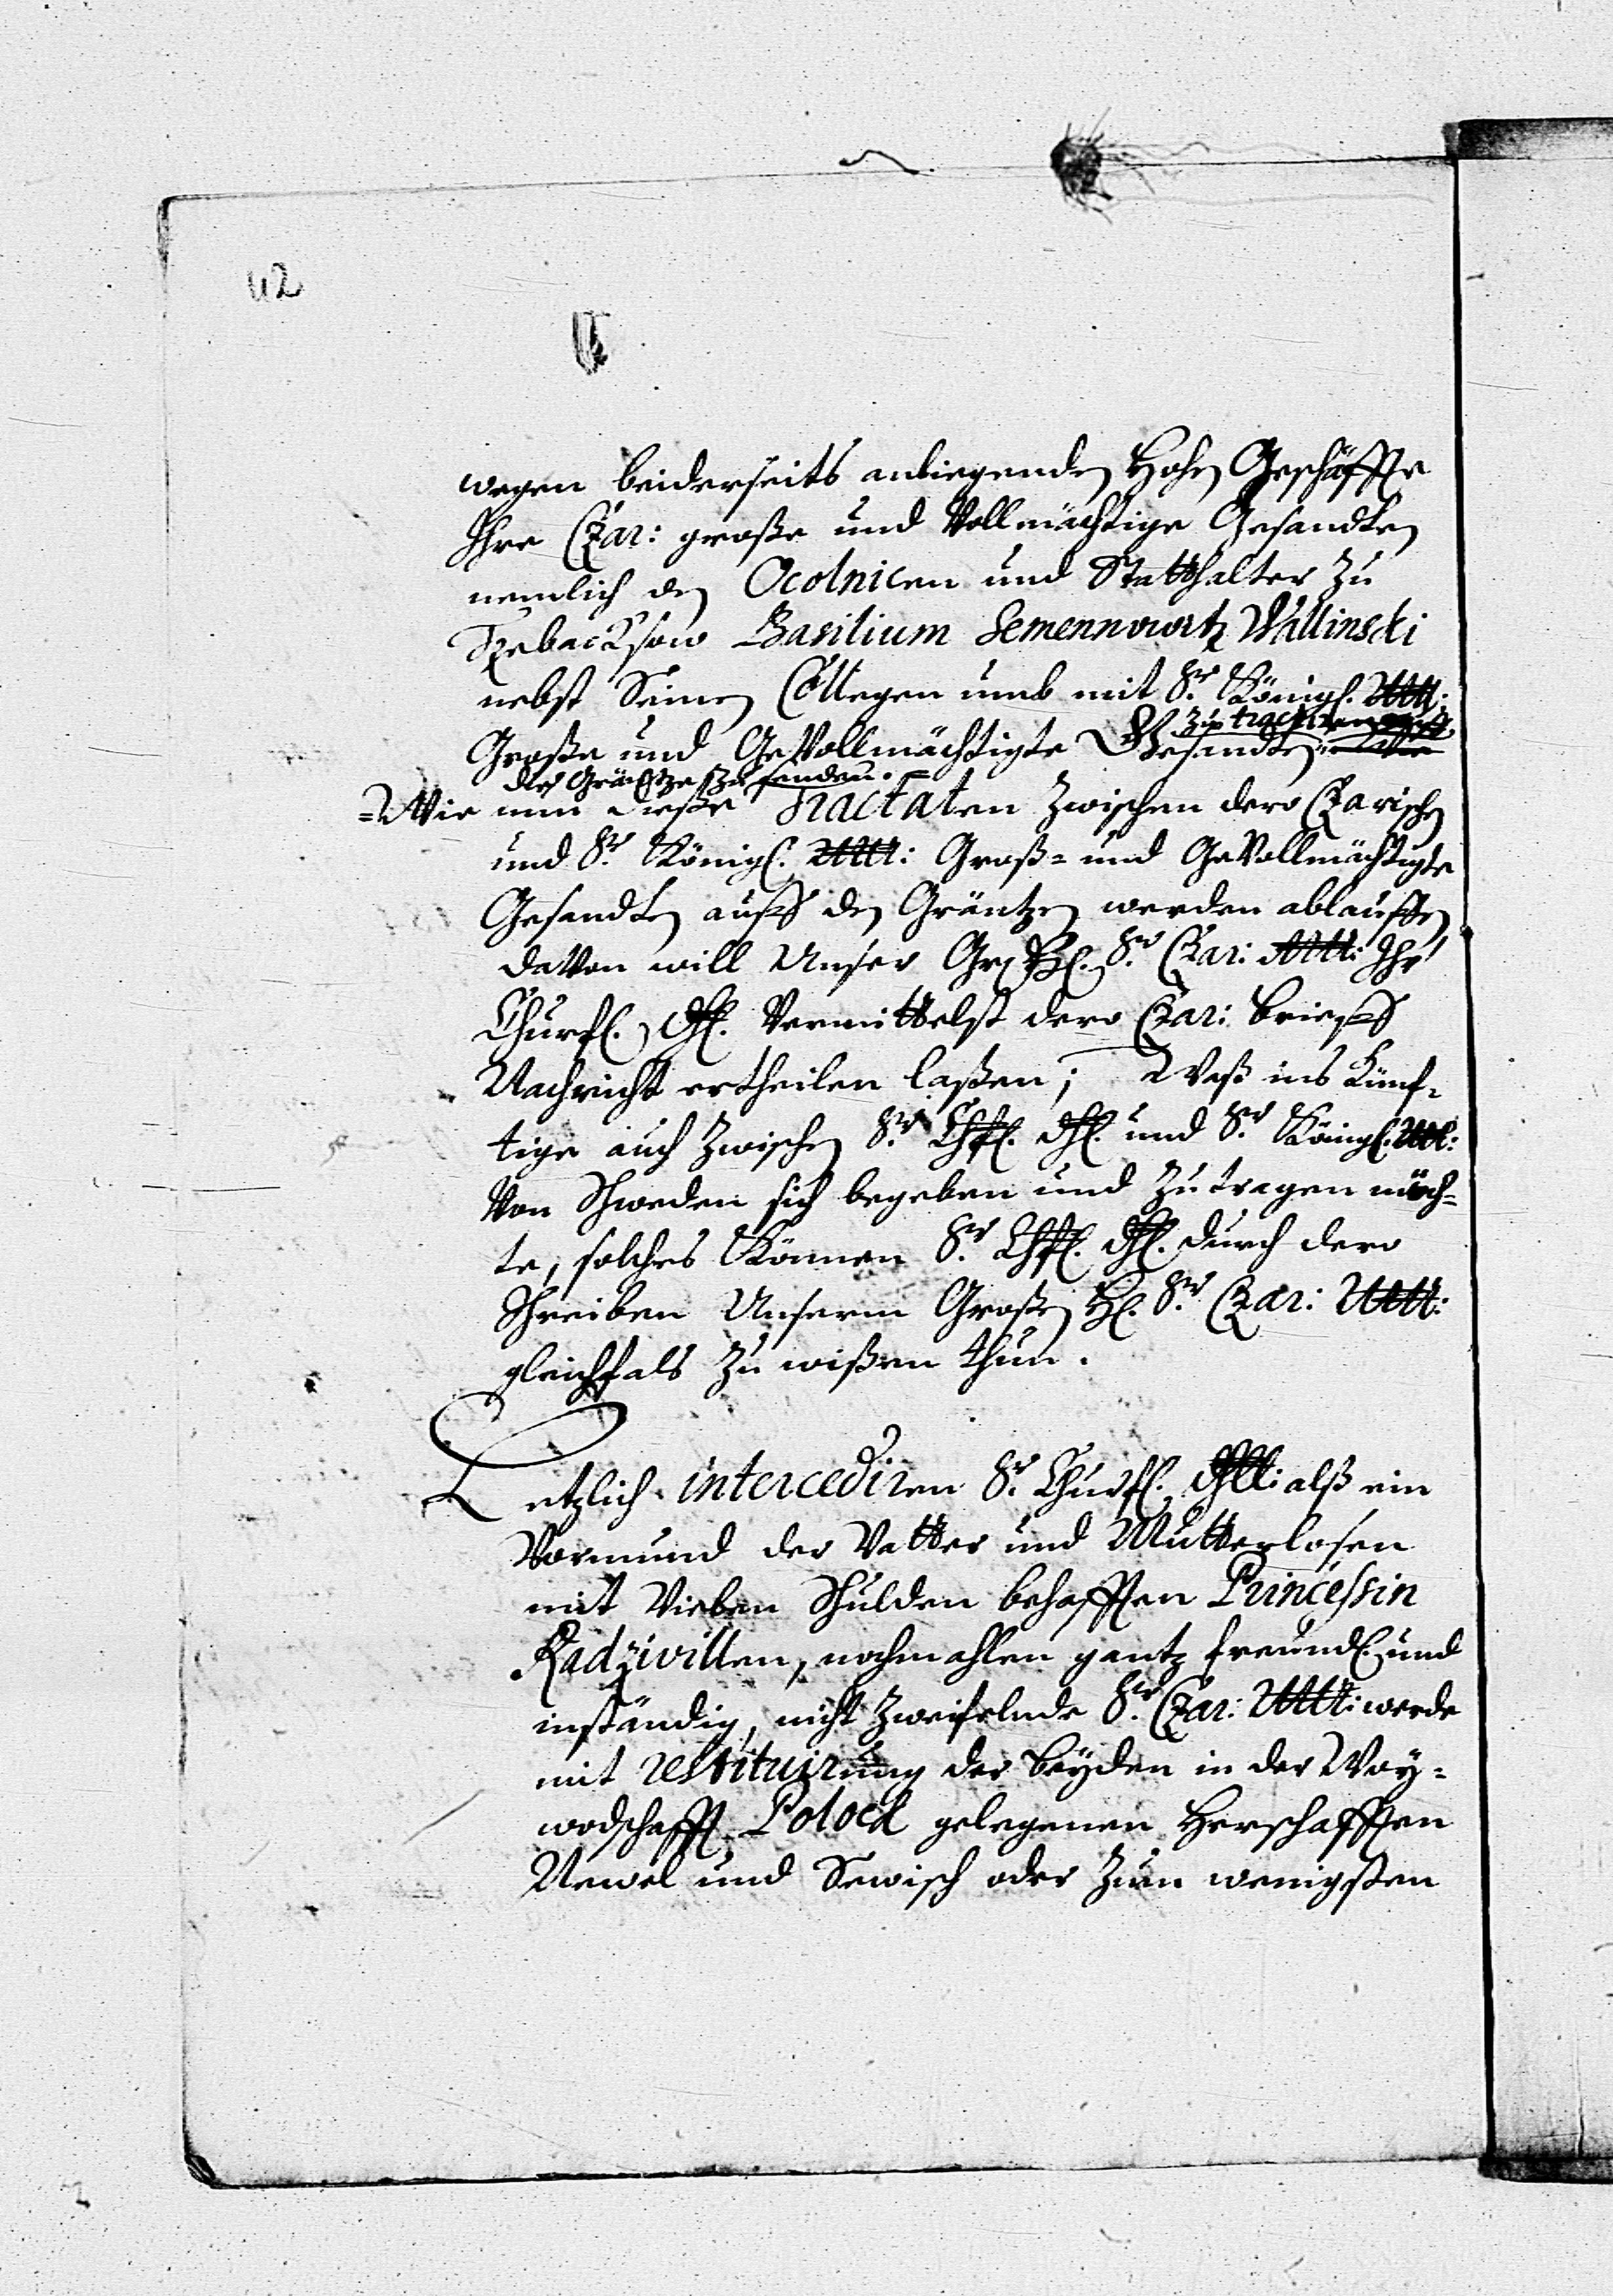 42
wegen beiderseits anliegenden Hohen Geschäffte
Ihre Czar: große und Vollmächtige Gesandten
nemlich den Ocolnicen und Statthalter zu
Szebacksow Basilium Semennowitz Wollinski
nebst Seinen Collegen umb mit Sr. Königl. Mtt:
zu tractiren auff
Große und GeVollmächtigte Gesandten
der Gräntze zu senden.
Wie nun dieße Tractaten zwischen dero Czarischen
und Sr. Königl. Mtt: Groß- und GeVollmächtigte
Gesandten auff den Gräntzen werden ablauffen
daVon will Unser Gr. H. Sr. Czar: Mtt: Ihr
Churfl. Dl. Vermittelst dero Czar: brieffs
Nachricht ertheilen laßen; Waß ins Künf-
tige auch zwischen Sr. Chfl. Dl. und Sr. Königl. Mtt:
Von Schweden sich begeben und zutragen möch-
te, solches Können Sr. Chfl. Dl. durch dero
Schreiben Unserm Großen H. Sr. Czar: Mtt:
gleichfals zu wißen thun.
Letzlich intercediren Sr. Churfl. Dl: alß ein
Vormund der Vatter und Mutterlosen
mit Vielen Schulden behafften Princessin
Radzivillen, nochmahlen gantz freundl. und
inständig, nicht zweifelnde Sr. Czar: Mtt: werde
mit restituirung der beyden in der Woy-
wodschafft Polock gelegenen Herschafften
Newel und Sewisch oder zum wenigsten